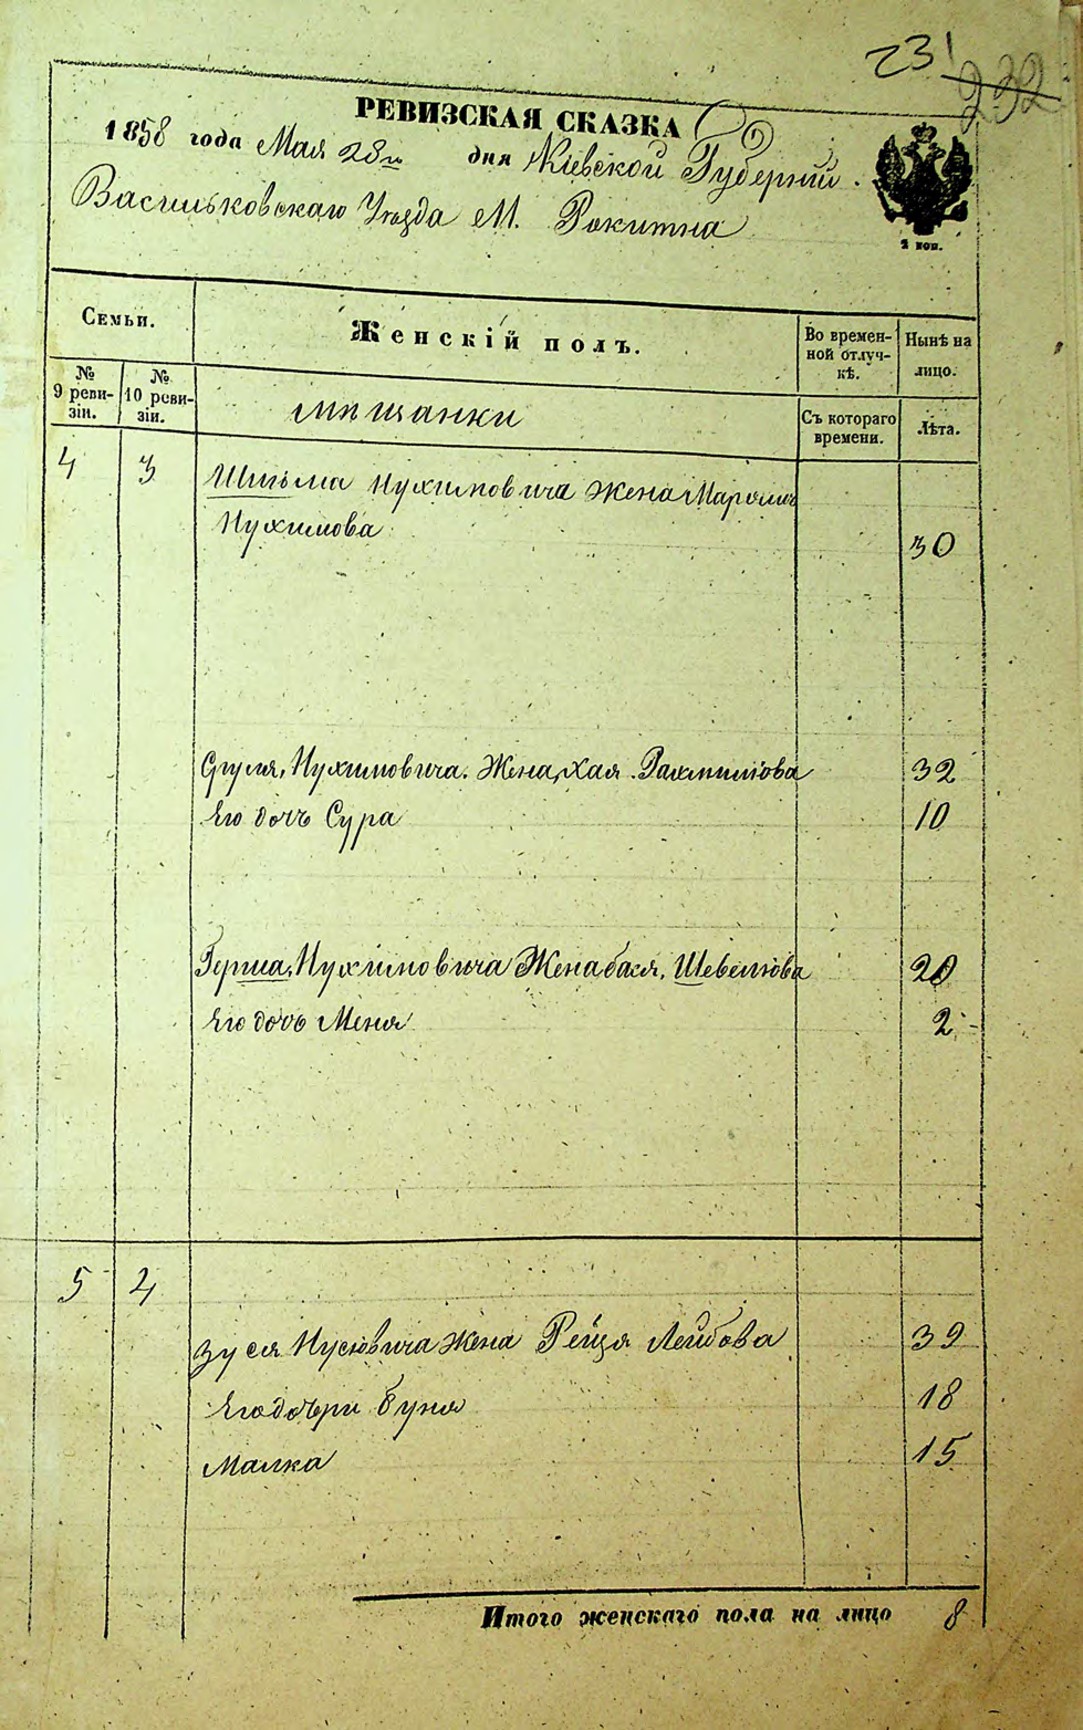 231
232
РЕВИЗСКАЯ СКАЗКА
1858 года Мая 28го дня Кіевской Губерній.
Васильковскаго Уѣзда М. Рокитна
2 коп.
Семьи.
Женскій полъ.
Во времен-
ной отлуч-
кѣ.
Нынѣ на
лицо.
№
9 реви-
зіи.
№
10 реви-
зіи.
мѣщанки
Съ котораго
времени.
Лѣта.
4 3 Шильма Нухимовича жена
Нухимова 30
Сруля, Нухимовича. Жена, Хая. Рахмилїова 32
Его дочъ Сура 10
Герша, Нухимовича Жена бася, Шевелїова 20
Его дочъ Меня 2
5 4
Зуся Нусїовича жена Рейзя Лейбова 39
Его дочѣри Буня 18
Малка 15
Итого женскаго пола на лицо 8